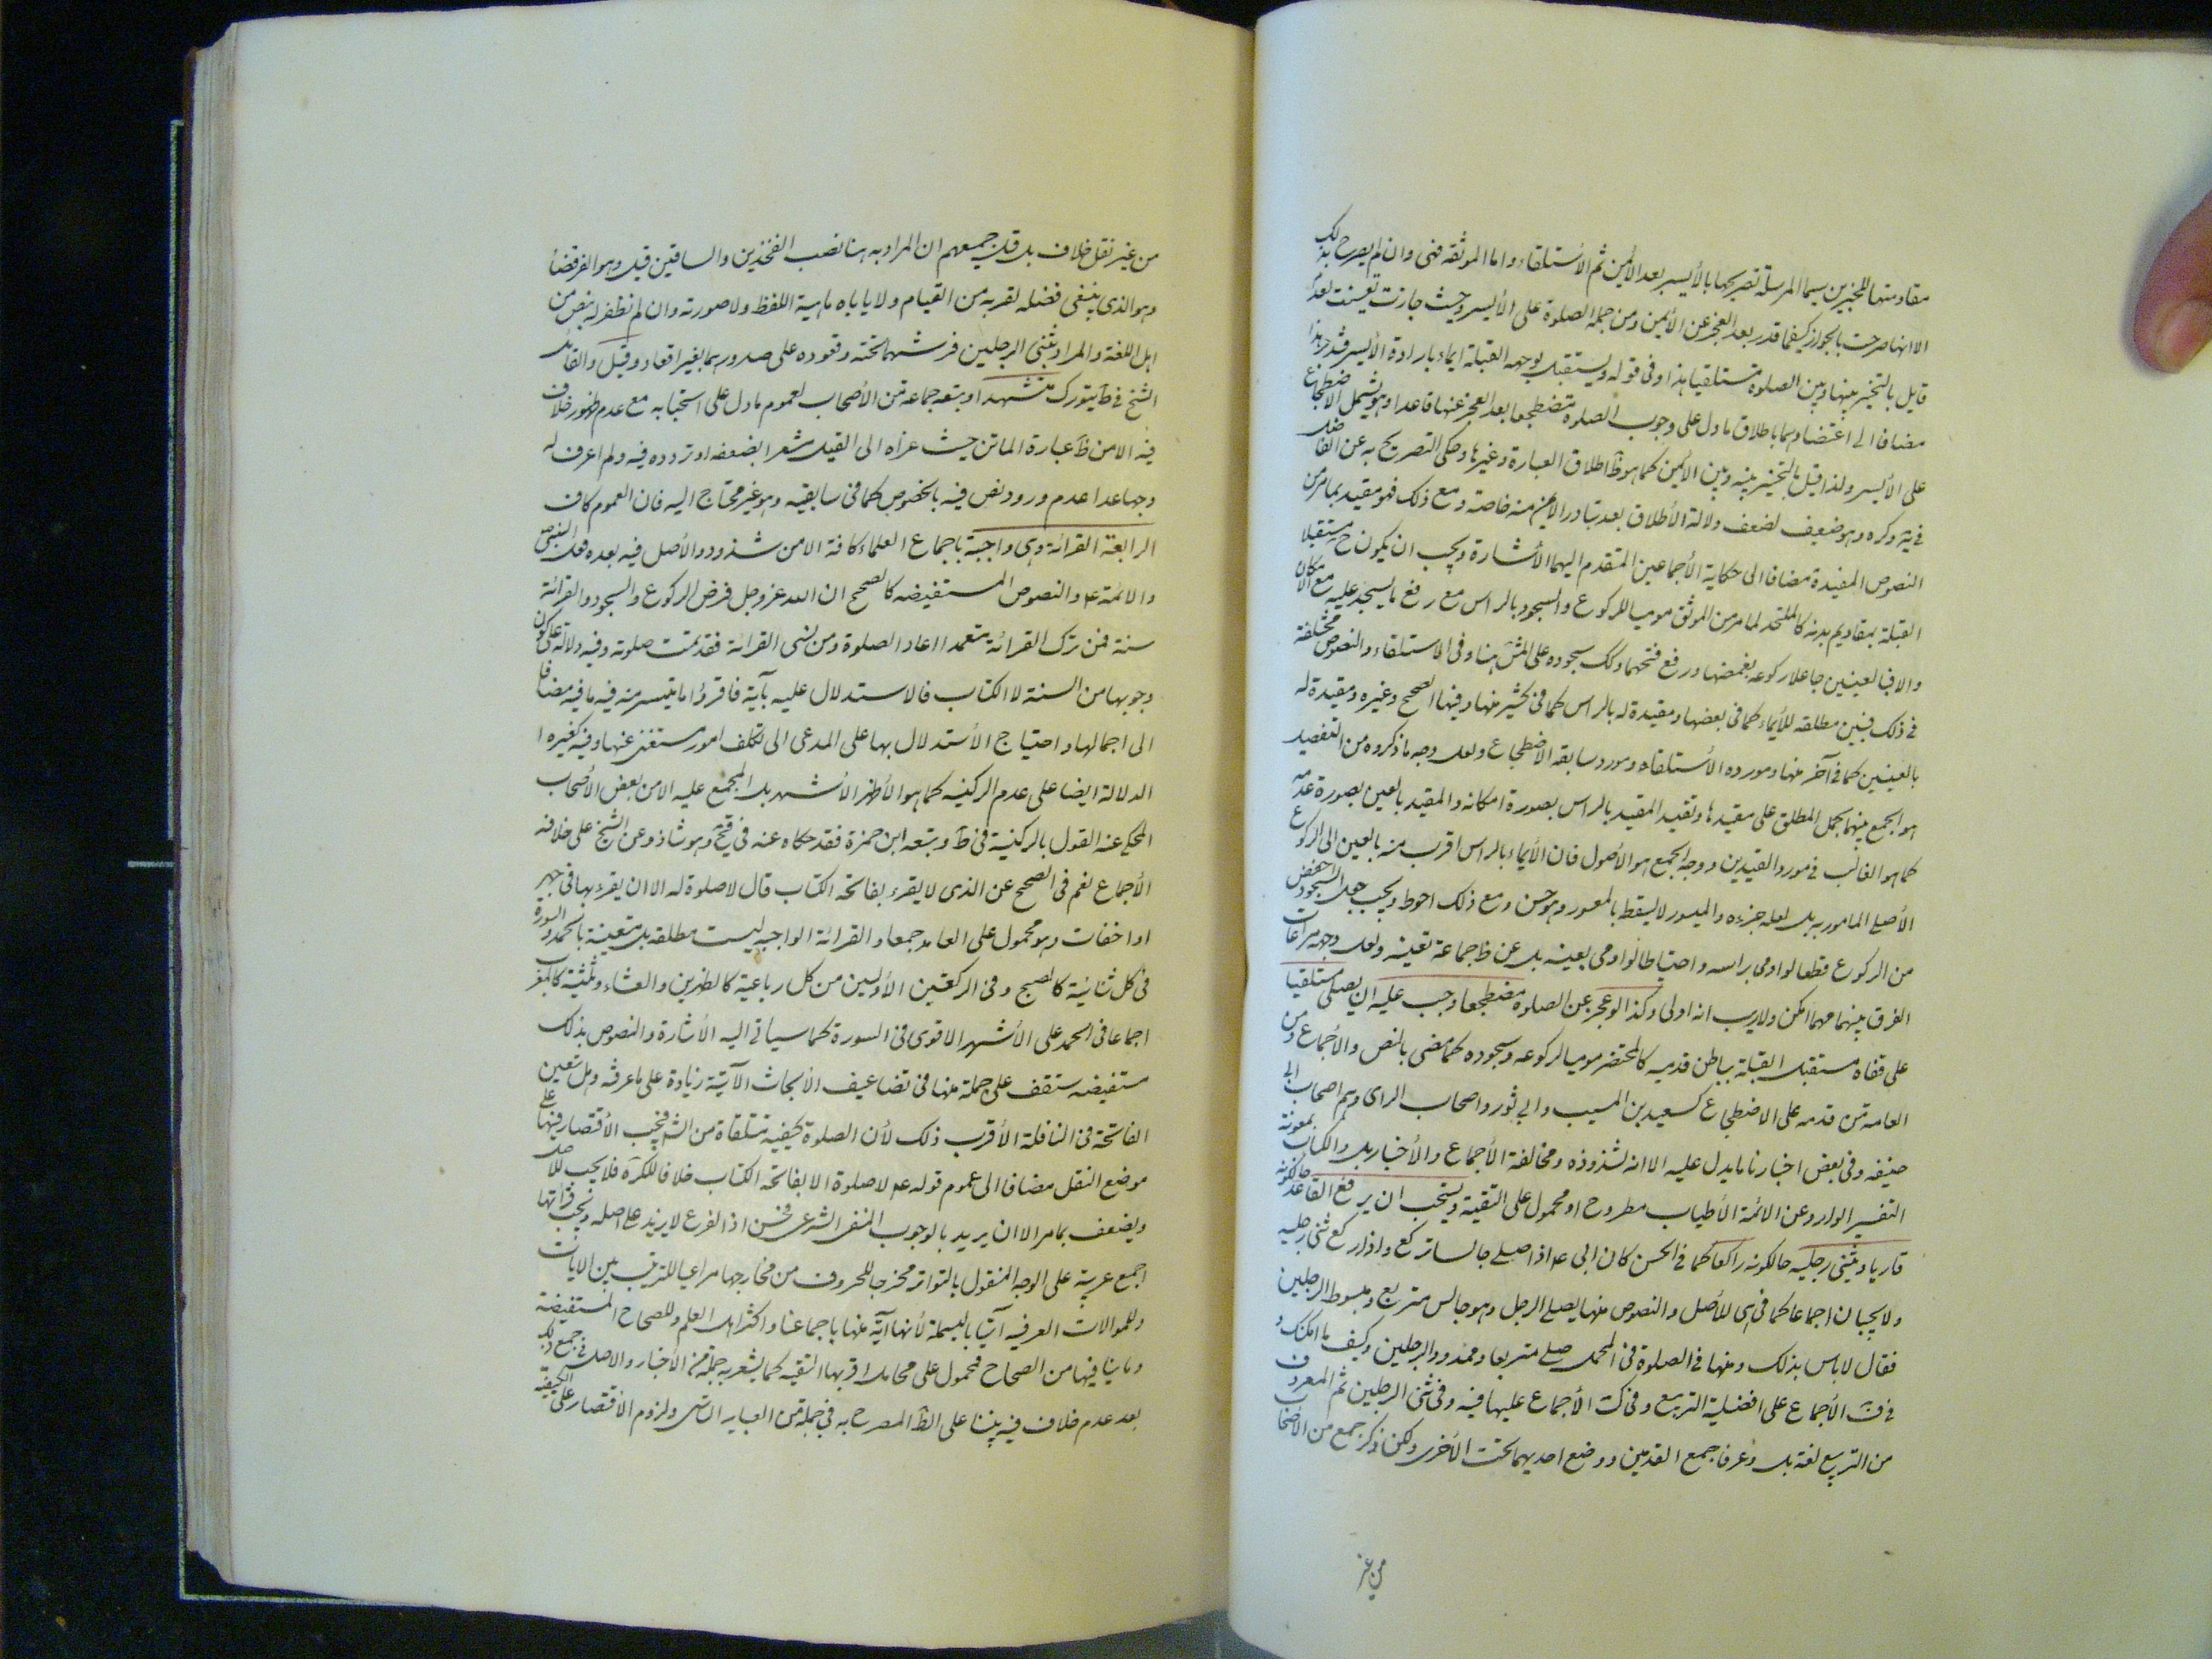 مقاومتها للخبرين سيما المرسلة تصريحها بالأيسر بعد الأيمن ثم الأستلقاء واما الموثقة فهى وان لم يصرح بذلك
الا انها صرحت بالجواز كيفما قدر بعد العجز عن الأيمن ومن جملة الصلوة على الأيسر وحيث جازت تعينت لعدم
قايل بالتخيير بينها وبين الصلوة مستلقيا هذا وفى قوله ويستقبل بوجهه القبلة ايماء بارادة الأيسر
مضافا الى اعتضادهما باطلاق ما دل على وجوب الصلوة مضطجعا بعد العجز عنها قاعدا وهو يشمل الاضطجاع
على الأيسر ولذا قيل بالتخيير بينه وبين الأيمن كما هو ظ اطلاق العبارة وغيرها وحكى التصريح به عن الفاضل
فى ية وكره وهو ضعيف لضعف دلالة الأطلاق بعد تبادر الايمن منه خاصة ومع ذلك فهو مقيد بما مر من
النصوص المفيدة مضافا الى حكاية الأجماعين المتقدم اليهما الأشارة ويجب ان يكون ح مستقبلا
القبلة بمقاديم بدنه كالملحد لما مر من الموثق موميا للركوع والسجود بالراس مع رفع ما يسجد عليه مع الامكان
والا فبالعينين جاعلا ركوعه بغمضها ورفع فتحهما وكك سجوده على المش هنا وفى الاستلقاء والنصوص مختلفة
فى ذلك فبين مطلقة للأيماء كما فى بعضها ومقيدة له بالراس كما فى كثير منها وفيها الصحيح وغيره ومقيدة له
بالعينين كما فى آخر منها ومورده الأستلقاء ومورد سابقه الاضطجاع ولعل وجه ما ذكروه من التفصيل
هو الجمع بينها بحمل المطلق على مقيدها وتقييد المقيد بالراس بصورة امكانه والمقيد بالعين بصورة عدمه
كما هو الغالب فى مورد القيدين ووجه الجمع هو الأصول فان الأيماء بالراس اقرب منه بالعين الى الركوع
الأصلى المامور به بل لعله جزءه والميسور لا يسقط بالمعسور وهو حسن ومع ذلك احوط ويجب جعل السجود اخفض
من الركوع قطعا لو اومى براسه واحتياطا لو اومى بعينه بل عن ظ جماعة تعينه ولعل وجهه مراعات
الفرق بينهما مهما امكن ولا ريب انه اولى وكذا لو عجز عن الصلوة مضطجعا وجب عليه ان يصلى مستلقيا
على قفاه مستقبل القبلة بباطن قدميه كالمحتضر موميا لركوعه وسجوده كما مضى بالنص والأجماع ومن
العامة من قدمه على الاضطجاع كسعيد بن المسيب وابى ثور واصحاب الراى وهم اصحاب ابى
حنيفه وفى بعض اخبارنا ما يدل عليه الا انه لشذوذه ومخالفة الأجماع والأخبار بل والكتاب بمعونة
التفسير الوارد عن الائمة الأطياب مطروح او محمول على التقية ويستحب ان يرفع القاعد حالكونه
قاريا ويثنى رجليه حالكونه راكعا كما فى الحسن كان ابى ع اذا صلى جالسا تربع واذا ركع ثنى رجليه
ولا يجبان اجماعا كما فى هى للأصل والنصوص منها يصلى الرجل وهو جالس متربع ومبسوط الرجلين
فقال لا باس بذلك ومنها فى الصلوة فى المحمل صلى متربعا وممدود الرجلين وكيف ما امكنك و
فى ف الأجماع على افضلية التربيع وفى كت الأجماع عليها فيه وفى ثنى الرجلين ثم المعروف
من التربيع لغة بل وعرفا جمع القدمين ووضع احديهما تحت الأخرى ولكن ذكر جمع من الاصحاب
من غير
من غير نقل خلاف بل قيل جميعهم ان المراد به هنا نصب الفخذين والساقين قيل وهو القرفصا
وهو الذى ينبغى فضله لقربه من القيام ولا ياباه ماهية اللفظ ولا صورته وان لم نظفر له بنص من
اهل اللغة والمراد بثنى الرجلين فرشهما تحته وقعوده على صدورهما بغير اقعاد وقيل والقائل
الشيخ فى ط يتورك متشهدا وتبعه جماعة من الأصحاب لعموم ما دل على استحبابه مع عدم ظهور خلاف
فيه الا من ظ عبارة الماتن حيث عزاه الى القيل مشعرا بضعفه او تردده فيه ولم اعرف له
وجها عدا عدم ورود نص فيه بالخصوص كما فى سابقيه وهو غير محتاج اليه فان العموم كاف
الرابعة القرائة وهى واجبة باجماع العلماء كافة الا من شذ ود والأصل فيه بعده فعل النبى ص
والائمة ع والنصوص المستفيضه كالصحيح ان الله عز وجل فرض الركوع والسجود والقرائة
سنة فمن ترك القرائة متعمدا اعاد الصلوة ومن نسى القرائة فقد تمت صلوته وفيه دلالة على كون
وجوبها من السنة لا الكتاب فالاستدلال عليه بآية فاقرؤا ما تيسر منه فيه ما فيه مضافا
الى اجمالها واحتياج الأستدلال بها على المدعى الى تكلف امور مستغنى عنها وفيه كغيره ا
الدلالة ايضا على عدم الركنيه كما هو الأظهر الأشهر بل المجمع عليه الا من بعض الأصحاب
المحكى عنه القول بالركنية فى ط وتبعه ابن حمزة فقد حكاه عنه فى قيح وهو شاذ وعن الشيخ على خلافه
الأجماع نعم فى الصحيح عن الذى لا يقرء بفاتحة الكتاب قال لا صلوة له الا ان يقرء بها فى جهر
او اخفات وهو محمول على العامد جمعا والقرائة الواجبه ليست مطلقه بل متعينة بالحمد والسورة
فى كل ثنائية كالصبح وفى الركعتين الأوليين من كل رباعية كالظهرين والعشاء وثلثية كالمغرب
اجماعا فى الحمد على الأشهر الاقوى فى السورة كما سياتى اليه الأشارة والنصوص بذلك
مستفيضه ستقف على جملة منها فى تضاعيف الأبحاث الآتية زيادة على ما عرفته وهل تتعين
الفاتحة فى النافلة الأقرب ذلك لأن الصلوة كيفية متلقاة من الشرع فيجب الأقتصار فيها على
موضع النقل مضافا الى عموم قوله ع لا صلوة الا بفاتحة الكتاب خلافا للكره فلا يجب للاصل
ويضعف بما مر الا ان يريد بالوجوب المنفى الشرعى فحسن اذا الفرع لا يزيد على اصله ويجب قرائتها
اجمع عربية على الوجه المنقول بالتواتر مخرجا للحروف من مخارجها مراعيا للترتيب بين الايات
وللموالات العرفيه آتيا بالبسملة لأنها آية منها باجماعنا واكثر اهل العلم وللصحاح المستفيضة
وما ينافيها من الصحاح محمول على محامل اقربها التقيه كما يشعر به جملة من الأخبار والاصل فى جميع ذلك
بعد عدم خلاف فيه بيننا على الظ المصرح به فى جملة من العباير التاسى ولزوم الاقتصار على الكيفية